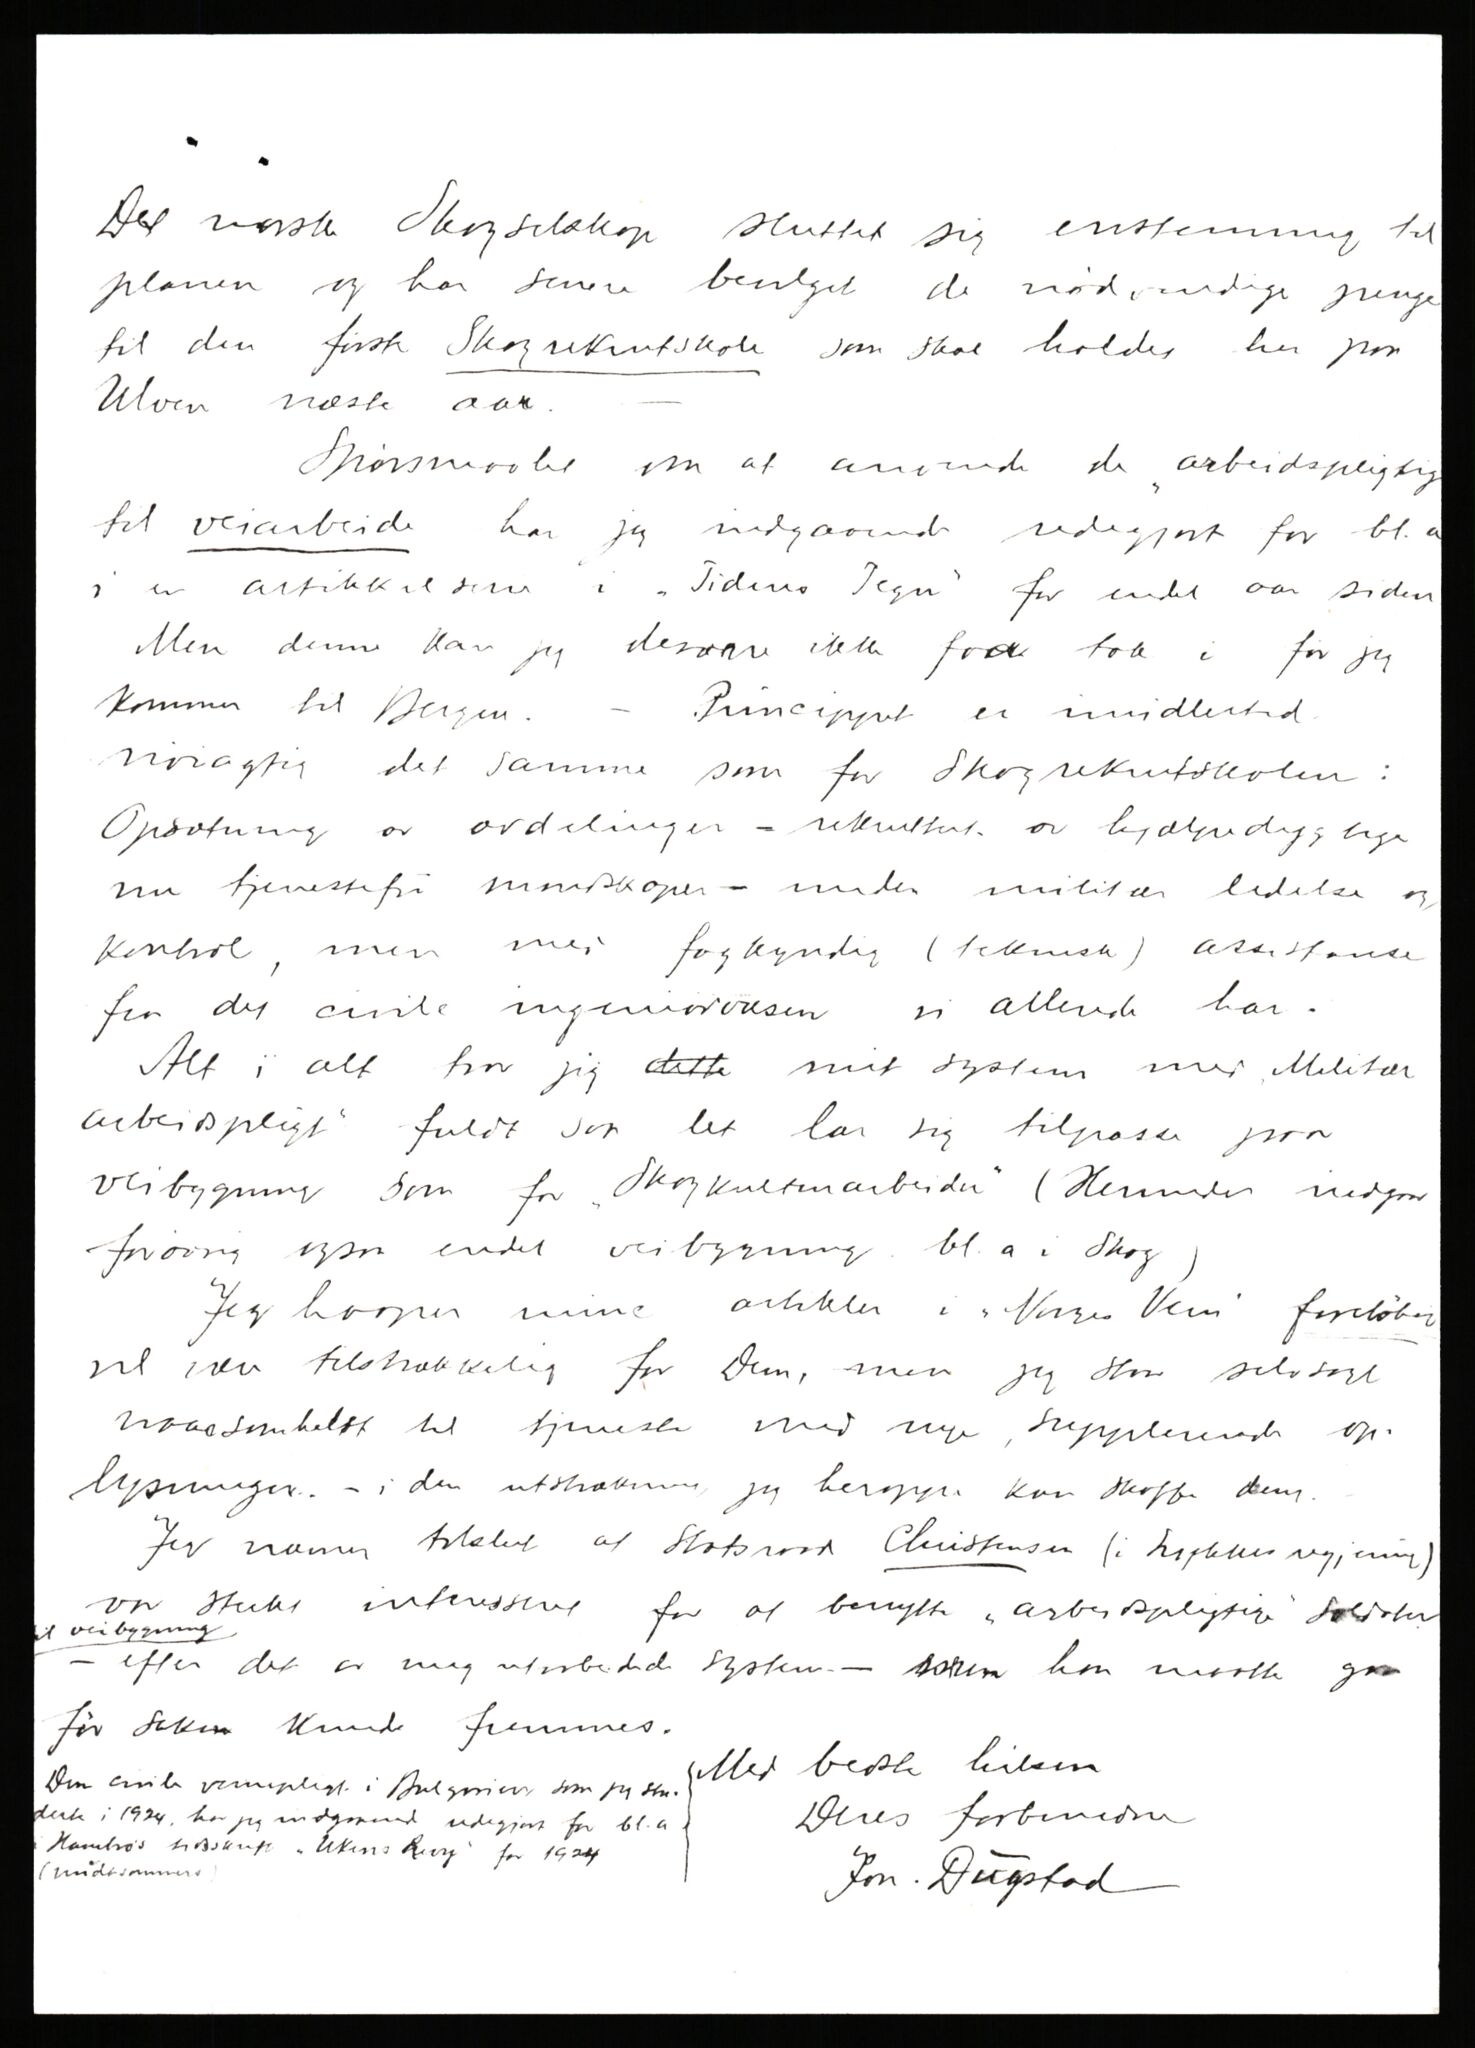 Det norske Skogselskap sluttet sig enstemmig til
planen og har senere bevilget de nødvendige penge
til den første Skogrekrutskole som skal holdes her paa
Ulven næste aar. —
Spørsmaalet om at anvende de „arbeidspligtig
til veiarbeide har jeg indgaaende redegjort for bl. a
i en artikkelserie i „Tidens Tegn" for endel aar siden
Men denne kan jeg desværre ikke faa tak i før jeg
kommer til Bergen. — Princippet er imidlertid
nøiagtig det samme som for Skogrekrutskolen:
Opsætning av avdelinger – rekruttert av hjælpedygtige
nu tjenestefri mandskaper – under militær ledelse og
kontrol, men med fagkyndig (teknisk) assistanse
fra det civile ingeniørvæsen vi allerede har.
Alt i alt tror jeg dette mit system med „Militær
arbeidspligt" fuldt saa let lar sig tilpasse paa
veibygning som for „Skogkulturarbeider" (Herunder indgaar
forøvrig ogsaa endel veibygning bl. a i Skog)
Jeg haaper mine artikler i „Norges Vern" foreløbig
vil være tilstrækkelig for Dem, men jeg staar selvsagt
naarsomhelst til tjeneste med nye, supplerende op-
lysninger. – i den utstrækning jeg heroppe kan skaffe dem. –
Jeg nævner tilslut at Statsraad Christensen (i Lykkes regjering)
var sterkt interessert for at benytte „arbeidspligtige" soldater
til veibygning
– efter det av mig utarbeidede system – men han maatte gaa
før saken kunde fremmes.
Med bedste hilsen
Deres forbundne
Jon. Dugstad
Den civile vernepligt i Bulgarien som jeg stu-
derte i 1924, har jeg indgaaende redegjort for bl. a
i Hambros tidsskrift „Ukens Revy" for 1924
(midtsommers)